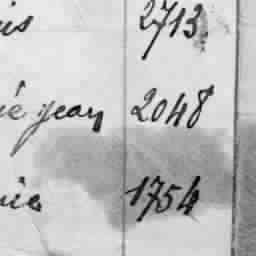 is 2713
ie jean 2048
nie 1754